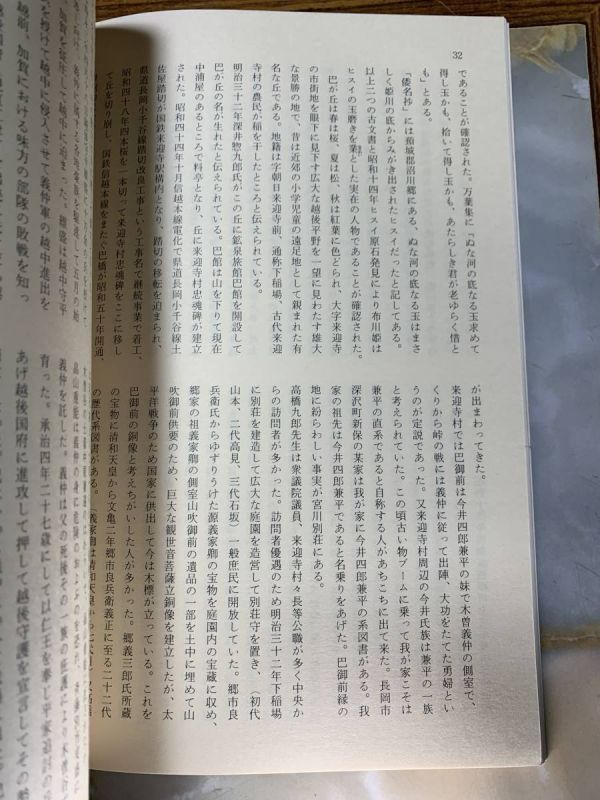 32
であることが確認された。万葉集に「ぬな河の底なる玉求めて
得し玉かも、拾いて得し玉かも、あたらしき君が老ゆらく惜と
も」とある。
「倭名抄」には頚城郡沼川郷にある、ぬな河の底なる玉はまさ
しく姫川の底からみがき出されたヒスイだったと記してある。
以上二つの古文書と昭和十四年ヒスイ原石発見により布川姫は
ヒスイの玉磨きを業とした実在の人物であることが確認された。
巴が丘は春は桜、夏は松、秋は紅葉に色どられ、大字来迎寺
の市街地を眼下に見下す広大な越後平野を一望に見わたす雄大
な景勝の地で、昔は近郊の小学児童の遠足地として親まれた有
名な丘である。地籍は字朝日来迎寺前、通称下稲場、古代来迎
寺村の農民が稲を干したところと伝えられている。
明治三十二年深井惣九郎氏がこの丘に鉱泉旅館巴館を開設して
巴が丘の名が生れたと伝えられている。巴館は山を下りて現在
中浦屋のあるところで料亭となり、丘に来迎寺村忠魂碑が建立
された。昭和四十四年十月信越本線電化で県道長岡小千谷線土
佐屋踏切が国鉄来迎寺駅構内となり、踏切の移転を迫まられ、
県道長岡小千谷線踏切改良工事という工事名で継続事業で着工、
昭和四十八年四本桜を一本切って来迎寺村忠魂碑をここに移し
て丘を切り崩し、国鉄信越本線をまたぐ巴橋が昭和五十年開通、
が出まわってきた。
来迎寺村では巴御前は今井四郎兼平の妹で木曽義仲の側室で、
くりから峠の戦には義仲に従って出陣、大功をたてた勇婦とい
うのが定説であった。又来迎寺村周辺の今井氏族は兼平の一族
と考えられていた。この頃古い物ブームに乗って我が家こそは
兼平の直系であると自称する人があちこちに出て来た。長岡市
深沢町新保の某家は我が家に今井四郎兼平の系図書がある。我
家の祖先は今井四郎兼平であると名乗りをあげた。巴御前縁の
地に紛らわしい事実が宮川別荘にある。
高橋九郎先生は衆議院議員、来迎寺村々長等公職が多く中央か
らの訪問者が多かった。訪問者優遇のため明治三十二年下稲場
に別荘を建造して広大な庭園を造営して別荘守を置き、（初代
山本、二代高見、三代石坂）一般庶民に開放していた。郷市良
兵衛氏からゆずりうけた源義家卿の宝物を庭園内の宝蔵に収め、
郷家の祖義家卿の側室山吹御前の遺品の一部を土中に埋めて山
吹御前供要のため、巨大な観世音菩薩立銅像を建立したが、太
平洋戦争のため国家に供出して今は木標が立っている。これを
巴御前の銅像と考えちがいした人が多かった。郷義三郎氏所蔵
の宝物に清和天皇から文亀二年郷市良兵衛義正に至る二十二代
の歴代系図書がある。
加賀を征圧して越中に迫まった。
を授けて越中に侵入させて義仲軍の越中進出を
越前、加賀における味方の部隊の敗戦を知っ
義仲を託した。義仲は父の死後その
育った。承治四年二十七歳にして以仁王を奉じ平家追討の
あげ越後国府に進攻して押して越後守護を宣言してその